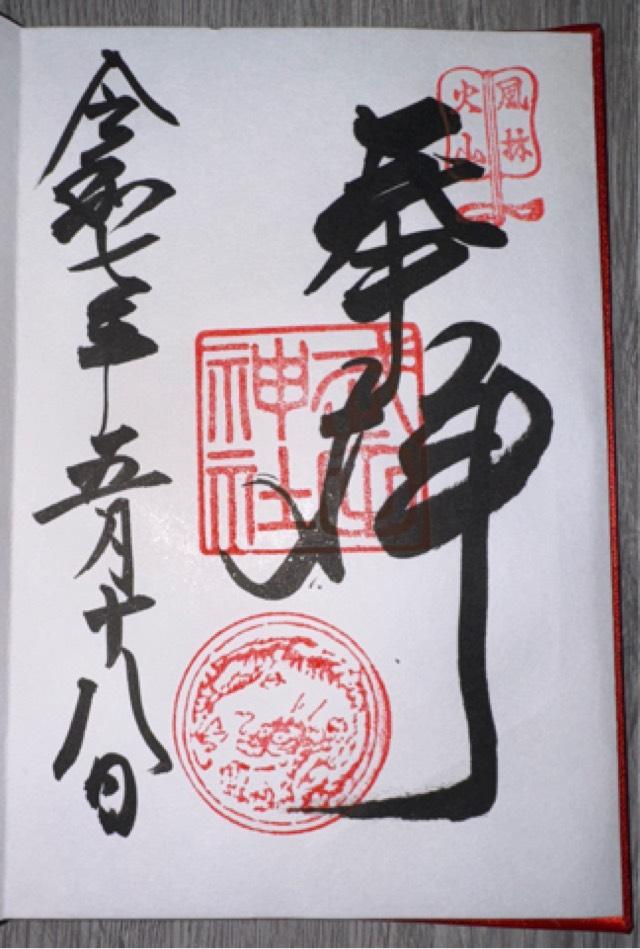 風林
火山
奉拝
武田
神社
令和七年五月十八日